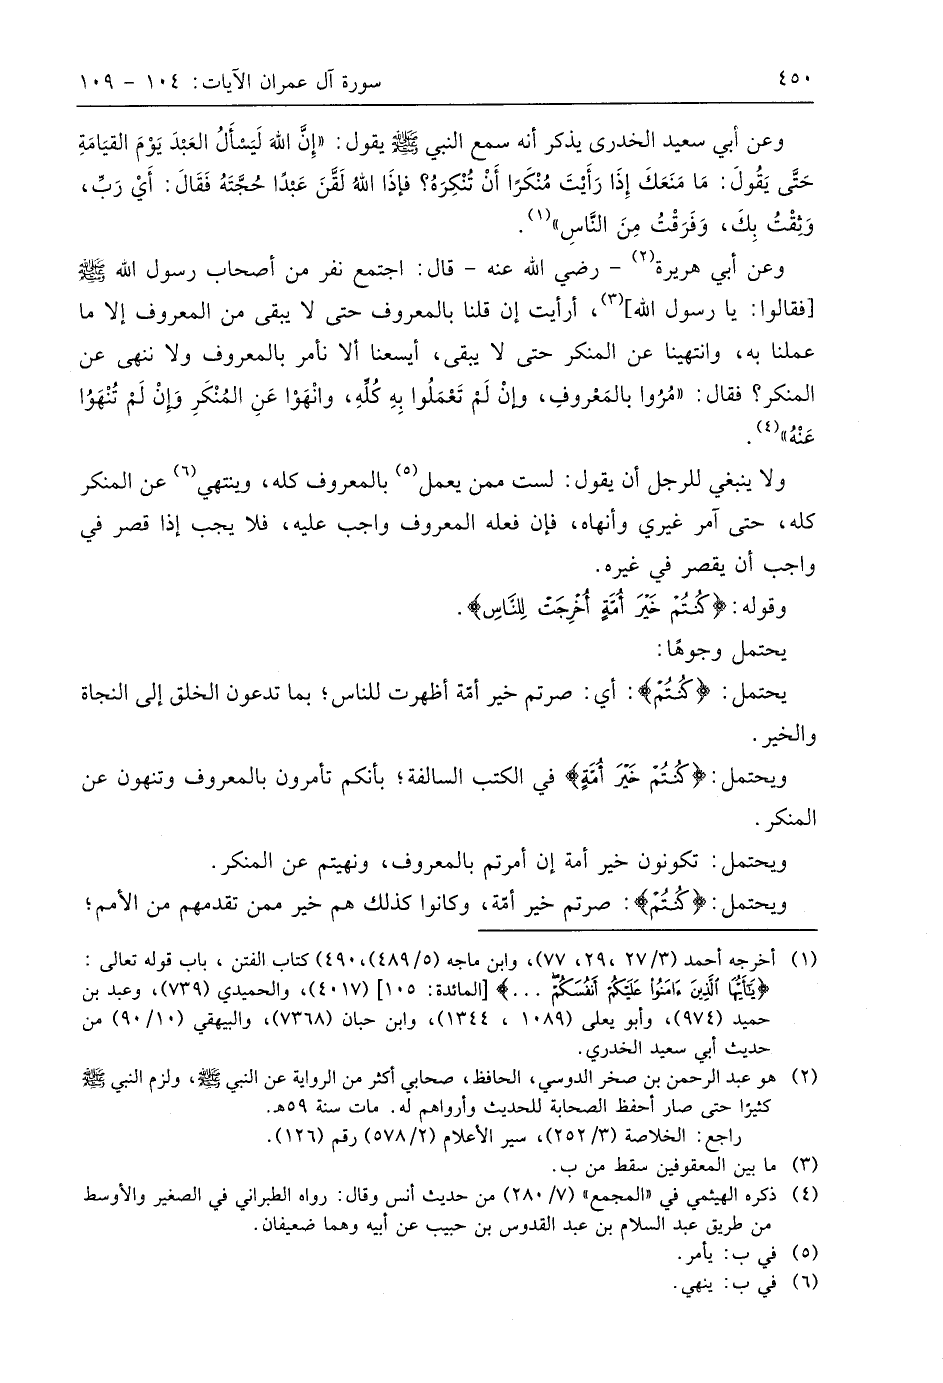 ٤٥٠ سورة آل عمران الآيات: ١٠٤ - ١٠٩
وعن أبي سعيد الخدرى يذكر أنه سمع النبي ﷺ يقول: «إِنَّ اللهَ لَيَسْأَلُ العَبْدَ يَوْمَ القيَامَةِ
حَتَّى يَقُولَ: مَا مَنَعَكَ إِذَا رَأَيْتَ مُنْكَرًا أَنْ تُنْكِرَهُ؟ فإِذَا اللهُ لَقَّنَ عَبْدًا حُجَّتَهُ فَقَالَ: أَيْ رَبِّ،
وَثِقْتُ بِكَ، وَفَرَقْتُ مِنَ النَّاسِ»(١).
وعن أبي هريرة(٢) - رضي الله عنه - قال: اجتمع نفر من أصحاب رسول الله ﷺ
[فقالوا: يا رسول الله](٣)، أرأيت إن قلنا بالمعروف حتى لا يبقى من المعروف إلا ما
عملنا به، وانتهينا عن المنكر حتى لا يبقى، أيسعنا ألا نأمر بالمعروف ولا ننهى عن
المنكر؟ فقال: «مُرُوا بالمَعْروفِ، وإِنْ لَمْ تَعْمَلُوا بِهِ كُلِّهِ، وانْهَوْا عَنِ المُنْكَرِ وَإِنْ لَمْ تُنْهَوْا
عَنْهُ»(٤).
ولا ينبغي للرجل أن يقول: لست ممن يعمل(٥) بالمعروف كله، وينتهي(٦) عن المنكر
كله، حتى آمر غيري وأنهاه، فإن فعله المعروف واجب عليه، فلا يجب إذا قصر في
واجب أن يقصر في غيره.
وقوله: ﴿كُنتُمْ خَيْرَ أُمَّةٍ أُخْرِجَتْ لِلنَّاسِ﴾.
يحتمل وجوهًا:
يحتمل: ﴿كُنتُمْ﴾: أي: صرتم خير أمّة أظهرت للناس؛ بما تدعون الخلق إلى النجاة
والخير.
ويحتمل: ﴿كُنتُمْ خَيْرَ أُمَّةٍ﴾ في الكتب السالفة؛ بأنكم تأمرون بالمعروف وتنهون عن
المنكر.
ويحتمل: تكونون خير أمة إن أمرتم بالمعروف، ونهيتم عن المنكر.
ويحتمل: ﴿كُنتُمْ﴾: صرتم خير أمّة، وكانوا كذلك هم خير ممن تقدمهم من الأمم؛
(١) أخرجه أحمد (٣/ ٢٧ ،٢٩، ٧٧)، وابن ماجه (٥/ ٤٨٩)،(٤٩٠) كتاب الفتن ، باب قوله تعالى :
﴿يَٰٓأَيُّهَا ٱلَّذِينَ ءَامَنُوا عَلَيْكُمْ أَنفُسَكُمْ ...﴾ [المائدة: ١٠٥] (٤٠١٧)، والحميدي (٧٣٩)، وعبد بن
حميد (٩٧٤)، وأبو يعلى (١٠٨٩ ، ١٣٤٤)، وابن حبان (٧٣٦٨)، والبيهقي (١٠/ ٩٠) من
حديث أبي سعيد الخدري.
(٢) هو عبد الرحمن بن صخر الدوسي، الحافظ، صحابي أكثر من الرواية عن النبي ﷺ، ولزم النبي ﷺ
كثيرًا حتى صار أحفظ الصحابة للحديث وأرواهم له. مات سنة ٥٩هـ.
راجع: الخلاصة (٣/ ٢٥٢)، سير الأعلام (٢/ ٥٧٨) رقم (١٢٦).
(٣) ما بين المعقوفين سقط من ب.
(٤) ذكره الهيثمي في «المجمع» (٧/ ٢٨٠) من حديث أنس وقال: رواه الطبراني في الصغير والأوسط
من طريق عبد السلام بن عبد القدوس بن حبيب عن أبيه وهما ضعيفان.
(٥) في ب: يأمر.
(٦) في ب: ينهي.